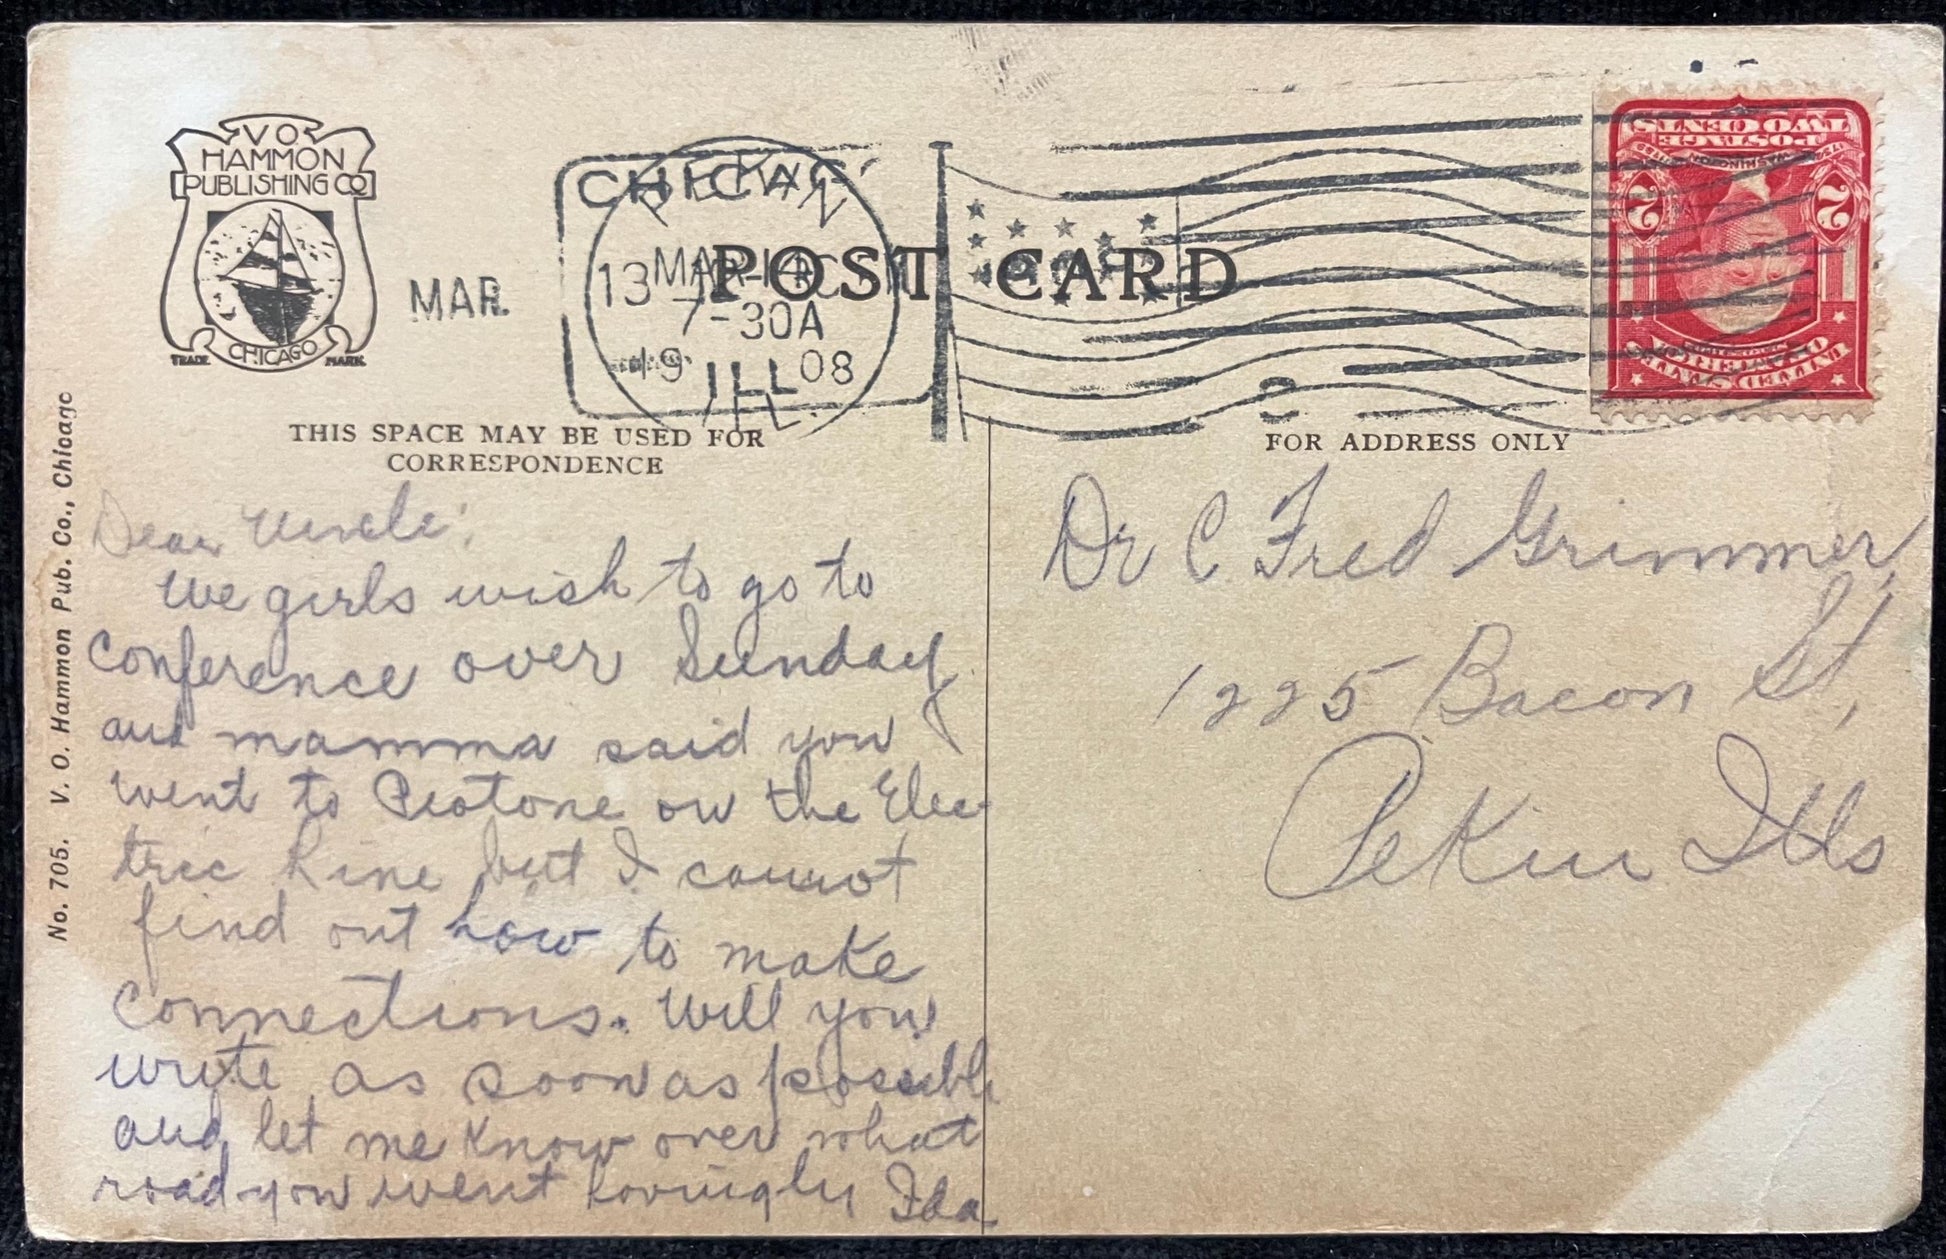 V O
HAMMON
PUBLISHING CO
TRADE CHICAGO MARK
MAR.
CHICAG
PEKIN
13 MAR 14
7-30A
19 08
ILL
ILL
POST CARD
TWO CENTS
POSTAGE
WASHINGTON
2 2
THIS SPACE MAY BE USED FOR
CORRESPONDENCE
FOR ADDRESS ONLY
No. 705. V. O. Hammon Pub. Co., Chicago
Dear Uncle:
We girls wish to go to
conference over Sunday
and mamma said you
went to Peotone on the Elec-
tric Line but I cannot
find out how to make
connections. Will you
write as soon as possible
and let me know over what
road you went Lovingly Ida.
Dr C. Fred Grimmer,
1225 Bacon St,
Pekin Ills